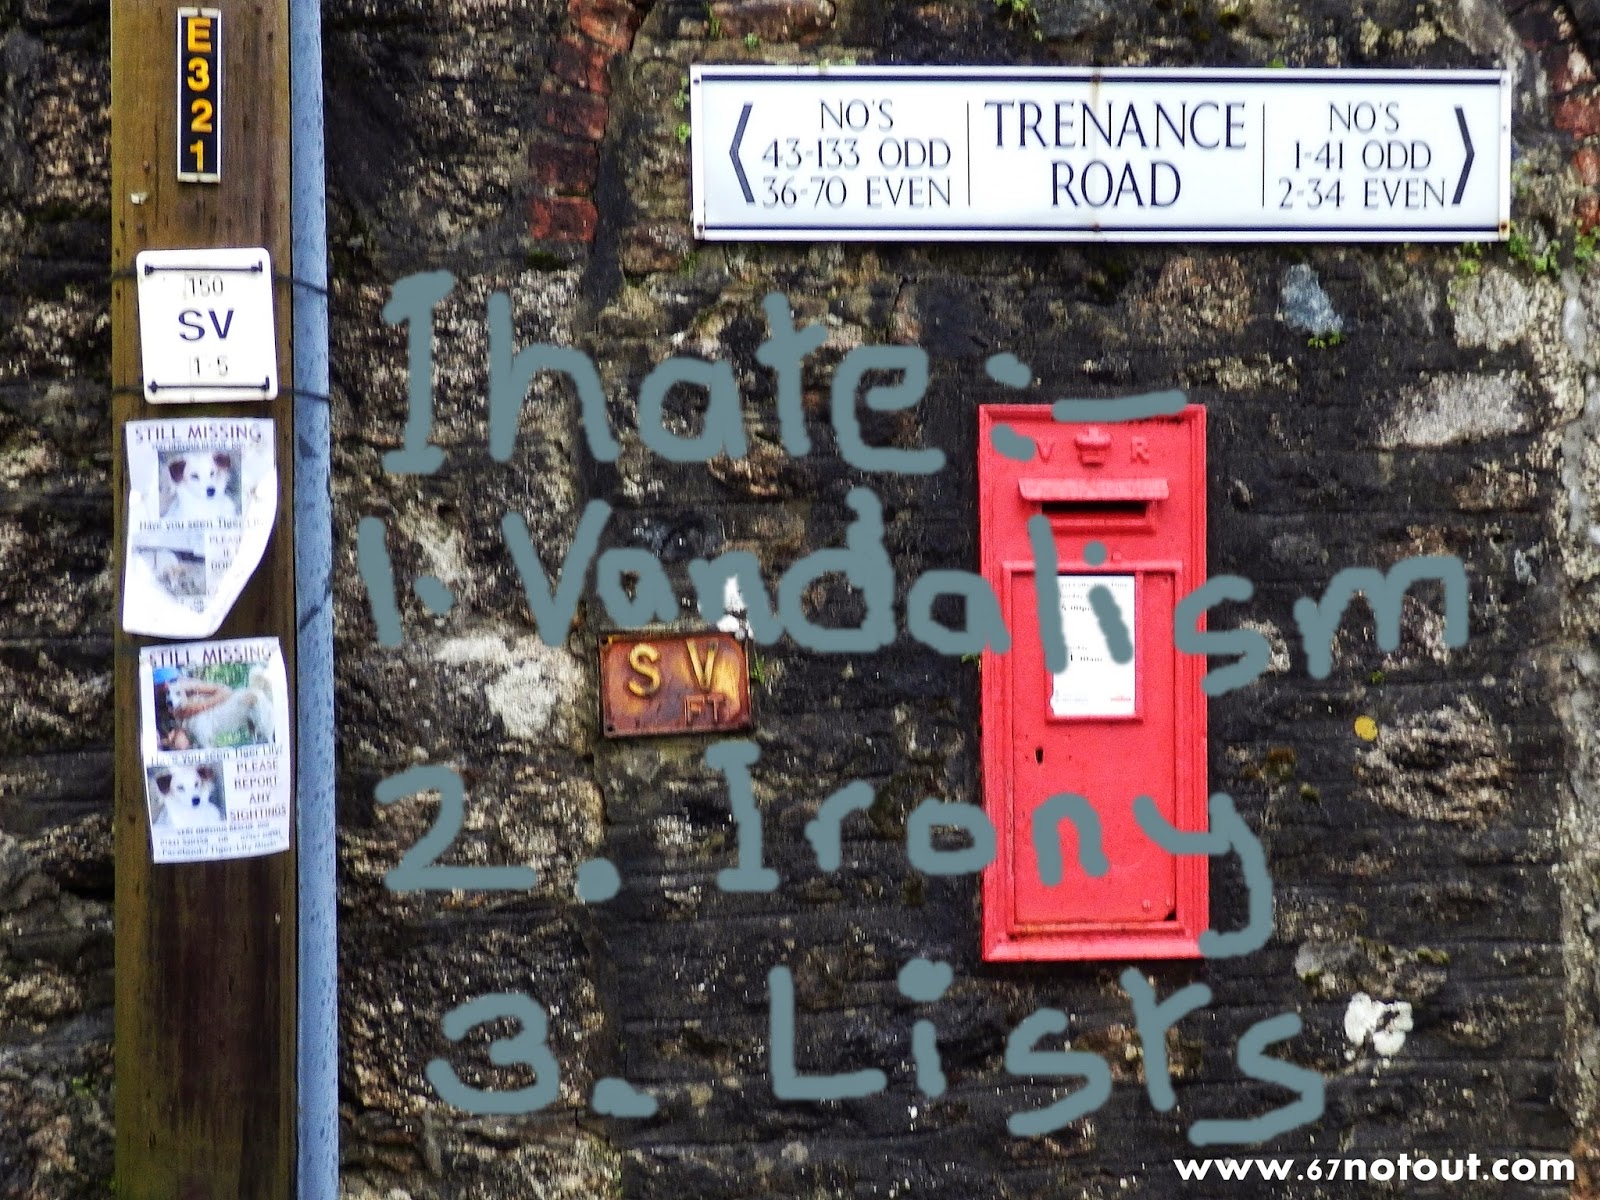 E321
150
SV
1-5
STILL MISSING
Have you seen Tiger Lily
PLEASE
STILL MISSING
Have you seen Tiger Lily
PLEASE
REPORT
ANY
SIGHTINGS
NO'S
43-133 ODD
36-70 EVEN
TRENANCE
ROAD
NO'S
1-41 ODD
2-34 EVEN
I hate:-
1. Vandalism
2. Irony
3. Lists
V R
SV
FT
www.67notout.com